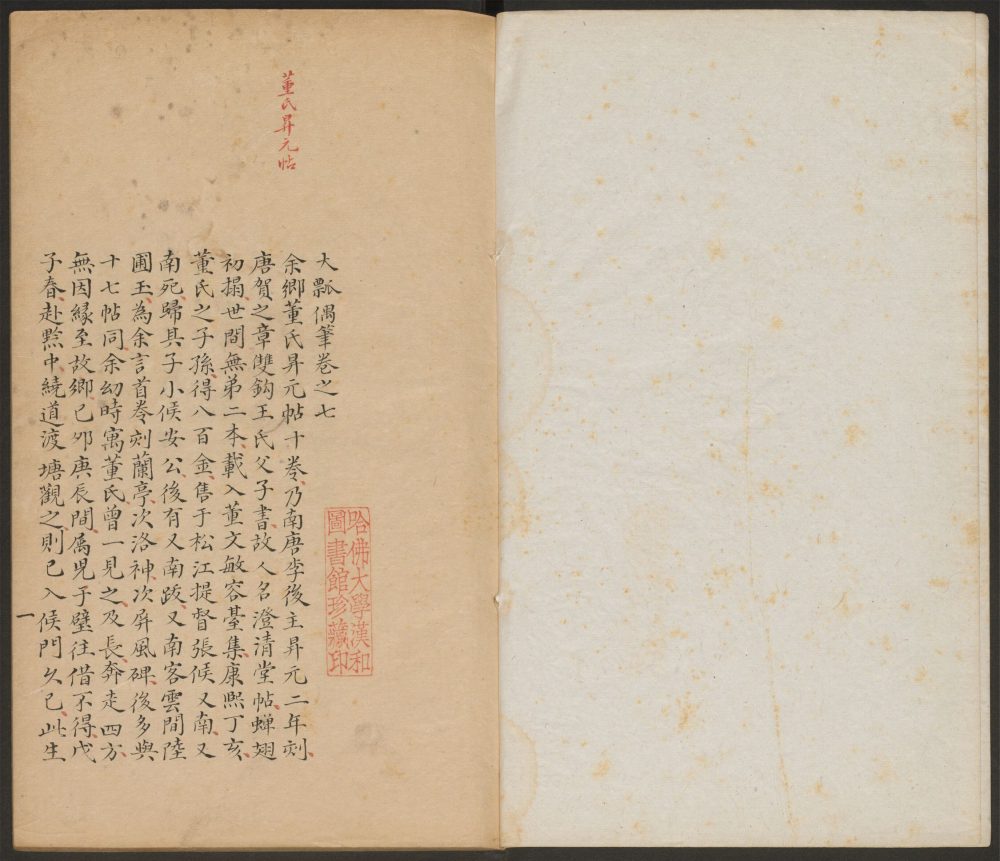 董氏昇元帖
大瓢偶筆卷之七
余鄉董氏昇元帖十卷乃南唐李後主昇元二年刻
唐賀之章雙鈎王氏父子書故人名澄清堂帖蟬翅
初搨世間無弟二本載入董文敏容䑓集康熙丁亥
董氏之子孫得八百金售于松江提督張侯又南又
南死歸其子小侯安公後有又南跋又南客雲間陸
圃玉為余言首卷刻蘭亭次洛神次屏風碑後多與
十七帖同余幼時寓董氏曾一見之及長奔走四方
無因緣至故鄉己夘庚辰間属児于璧往借不得戊
子春赴黔中繞道渡塘觀之則已入侯門久已此生
一
哈佛大學漢和
圖書館珍藏印